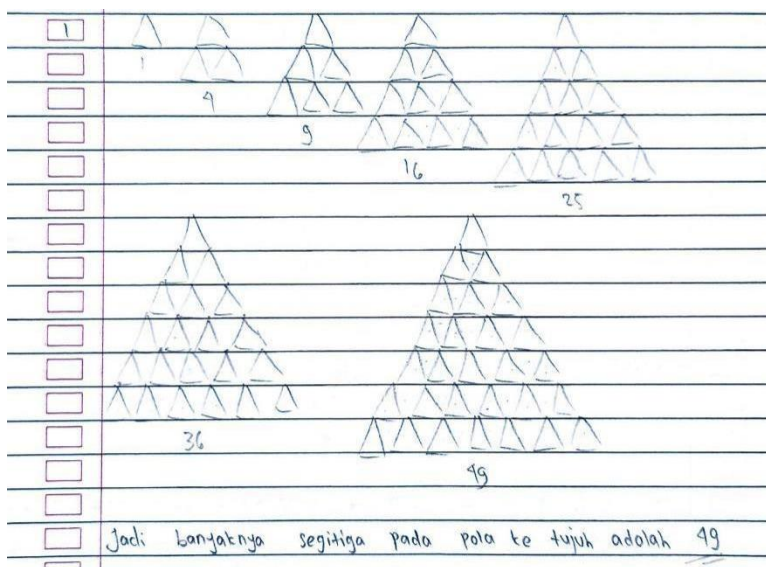 1
1
4
9
16
25
36
49
Jadi banyaknya segitiga pada pola ke tujuh adalah 49